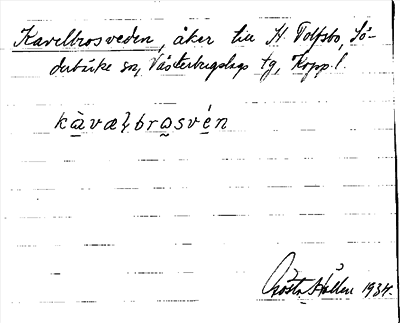 Kavelbrosveden, åker till H. Tolfsbo, Sö-
derbärke sn, Västerbergslags tg, Kopp. l.
kàvæɫbrosvén
Gösta Holm 1934.